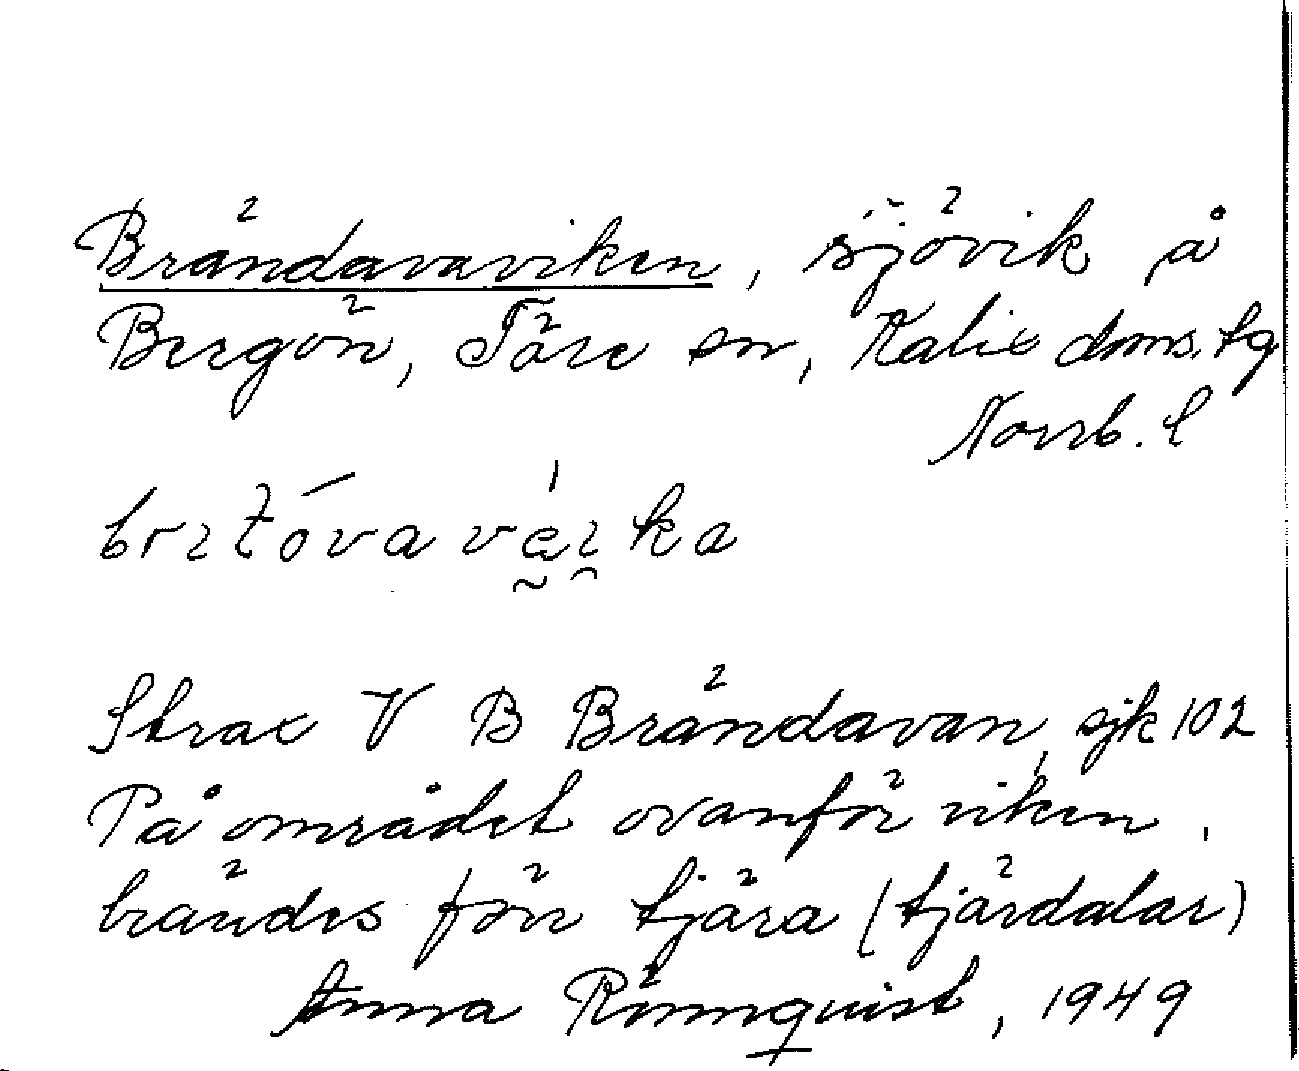 Brändavaviken, sjövik å
Bergön, Töre sn, Kalix doms. tg
Norrb. l
Strax V B Brändavan, sjk 102
På området ovanför viken
brändes förr tjära (tjärdalar)
Anna Rönnquist, 1949